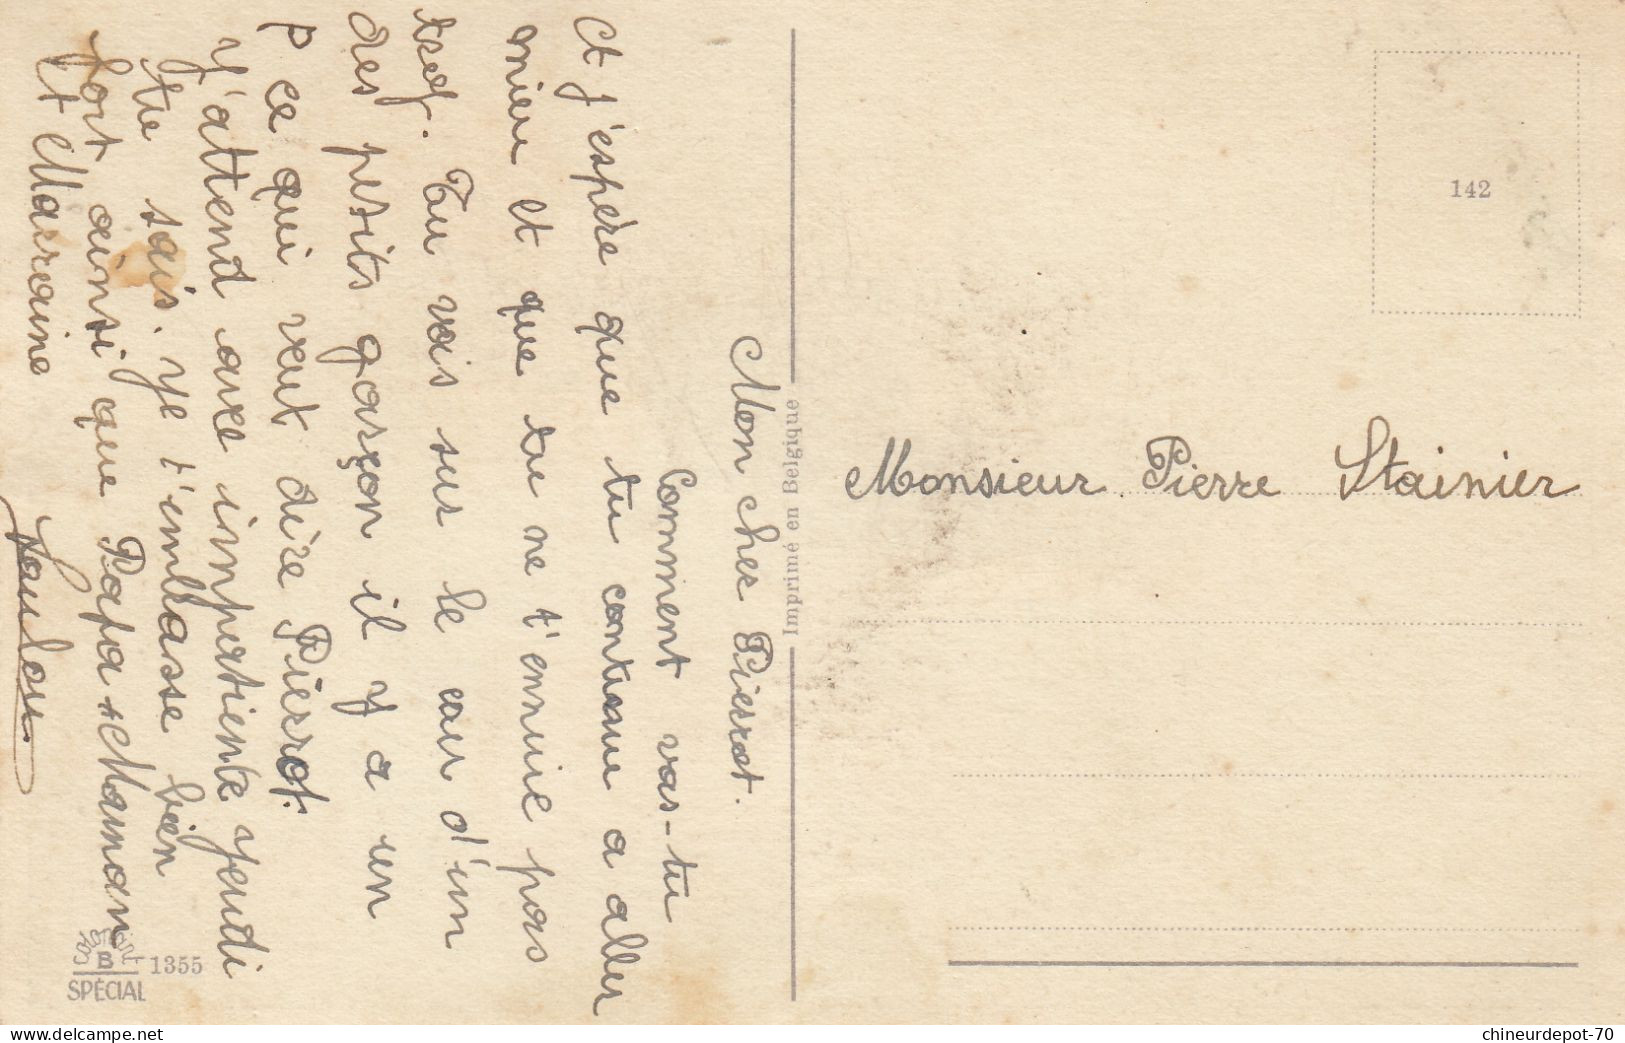 Mon cher Pierrot.
Comment vas-tu
et j'espère que tu contenu a aller
mieu et que tu ne t'ennuie pas
tref. Tu vois sur le car d'un
des petits garçon il y a un
P ce qui veut dire Pierrot.
J'attend avec impertiente jeudi
tu sais. Je t'embrasse bien
fort ainsi que Papa + Maman
et Marraine
Loulou.
Imprimé en Belgique
142
Monsieur Pierre Stainier
B
SPÉCIAL
1355
delcampe.net
chineurdepot-70